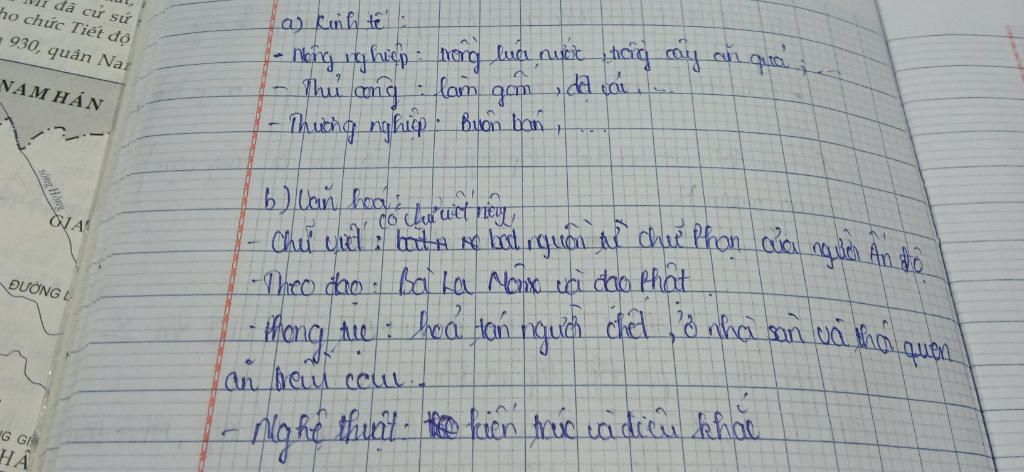 Mĩ đã cử sứ
ho chức Tiết độ
930, quân Nam
NAM HÁN
sông Hồng
GIA
ĐƯỜNG L
G GI
HÂ
a) Kinh tế :
- Nông nghiệp : trồng lúa nước, trồng cây ăn quả ;...
- Thủ công : làm gốm, dệt vải, ...
- Thương nghiệp : Buôn bán, ...
b) Văn hoá :
có chữ viết riêng,
- Chữ viết : bắt nguồn từ chữ Phạn của người Ấn Độ
- Theo đạo : Bà La Môn và đạo Phật
- Phong tục : hoả táng người chết, ở nhà sàn và thói quen
ăn trầu cau.
- Nghệ thuật : kiến trúc và điêu khắc